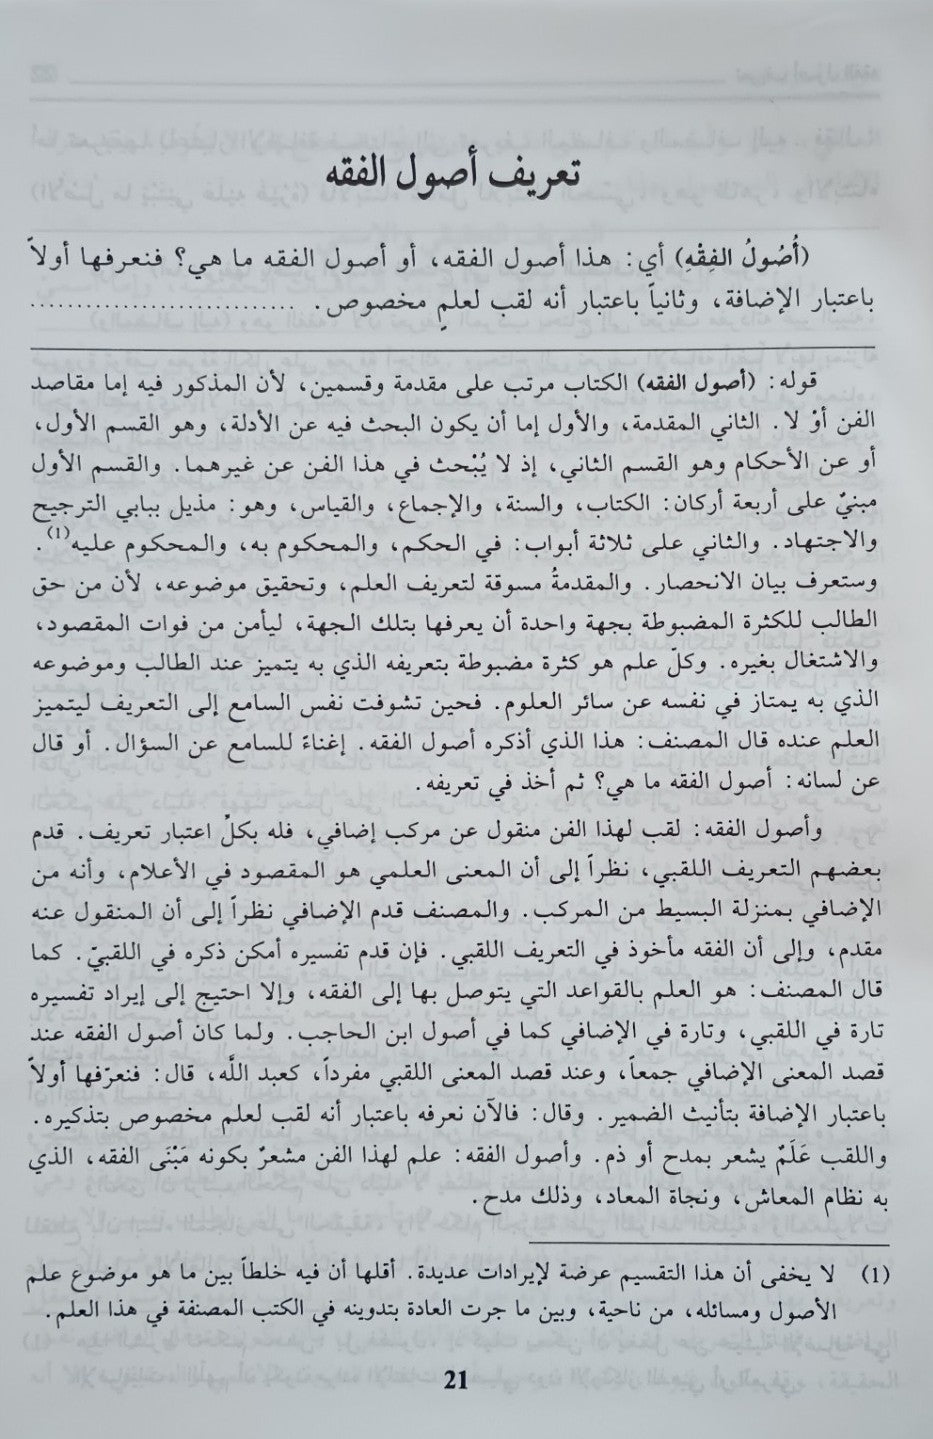 تعريف أصول الفقه
(أُصُولُ الفِقْهِ) أي: هذا أصول الفقه، أو أصول الفقه ما هي؟ فنعرفها أولاً
باعتبار الإضافة، وثانياً باعتبار أنه لقب لعلمٍ مخصوص. ............................
قوله: (أصول الفقه) الكتاب مرتب على مقدمة وقسمين، لأن المذكور فيه إما مقاصد
الفن أوْ لا. الثاني المقدمة، والأول إما أن يكون البحث فيه عن الأدلة، وهو القسم الأول،
أو عن الأحكام وهو القسم الثاني، إذ لا يُبْحث في هذا الفن عن غيرهما. والقسم الأول
مبنيٌ على أربعة أركان: الكتاب، والسنة، والإجماع، والقياس، وهو: مذيل ببابي الترجيح
والاجتهاد. والثاني على ثلاثة أبواب: في الحكم، والمحكوم به، والمحكوم عليه(1).
وستعرف بيان الانحصار. والمقدمةُ مسوقة لتعريف العلم، وتحقيق موضوعه، لأن من حق
الطالب للكثرة المضبوطة بجهة واحدة أن يعرفها بتلك الجهة، ليأمن من فوات المقصود،
والاشتغال بغيره. وكلّ علم هو كثرة مضبوطة بتعريفه الذي به يتميز عند الطالب وموضوعه
الذي به يمتاز في نفسه عن سائر العلوم. فحين تشوفت نفس السامع إلى التعريف ليتميز
العلم عنده قال المصنف: هذا الذي أذكره أصول الفقه. إغناءً للسامع عن السؤال. أو قال
عن لسانه: أصول الفقه ما هي؟ ثم أخذ في تعريفه.
وأصول الفقه: لقب لهذا الفن منقول عن مركب إضافي، فله بكلِّ اعتبار تعريف. قدم
بعضهم التعريف اللقبي، نظراً إلى أن المعنى العلمي هو المقصود في الأعلام، وأنه من
الإضافي بمنزلة البسيط من المركب. والمصنف قدم الإضافي نظراً إلى أن المنقول عنه
مقدم، وإلى أن الفقه مأخوذ في التعريف اللقبي. فإن قدم تفسيره أمكن ذكره في اللقبيّ. كما
قال المصنف: هو العلم بالقواعد التي يتوصل بها إلى الفقه، وإلا احتيج إلى إيراد تفسيره
تارة في اللقبي، وتارة في الإضافي كما في أصول ابن الحاجب. ولما كان أصول الفقه عند
قصد المعنى الإضافي جمعاً، وعند قصد المعنى اللقبي مفرداً، كعبد اللَّه، قال: فنعرّفها أولاً
باعتبار الإضافة بتأنيث الضمير. وقال: فالآن نعرفه باعتبار أنه لقب لعلم مخصوص بتذكيره.
واللقب عَلَمٌ يشعر بمدح أو ذم. وأصول الفقه: علم لهذا الفن مشعرٌ بكونه مَبْنَى الفقه، الذي
به نظام المعاش، ونجاة المعاد، وذلك مدح.
(1) لا يخفى أن هذا التقسيم عرضة لإيرادات عديدة. أقلها أن فيه خلطاً بين ما هو موضوع علم
الأصول ومسائله، من ناحية، وبين ما جرت العادة بتدوينه في الكتب المصنفة في هذا العلم.
21